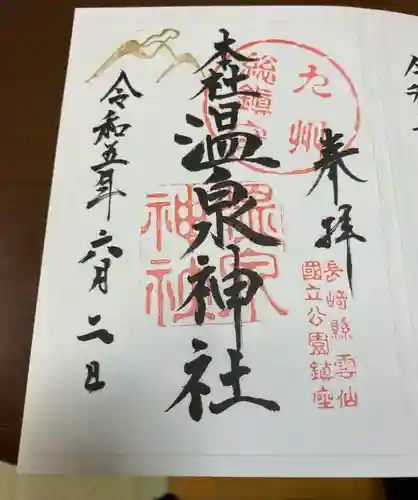 奉拝
九州
総鎮守
長崎縣雲仙
國立公園鎮座
本社
温泉神社
温泉
神社
令和五年六月二日